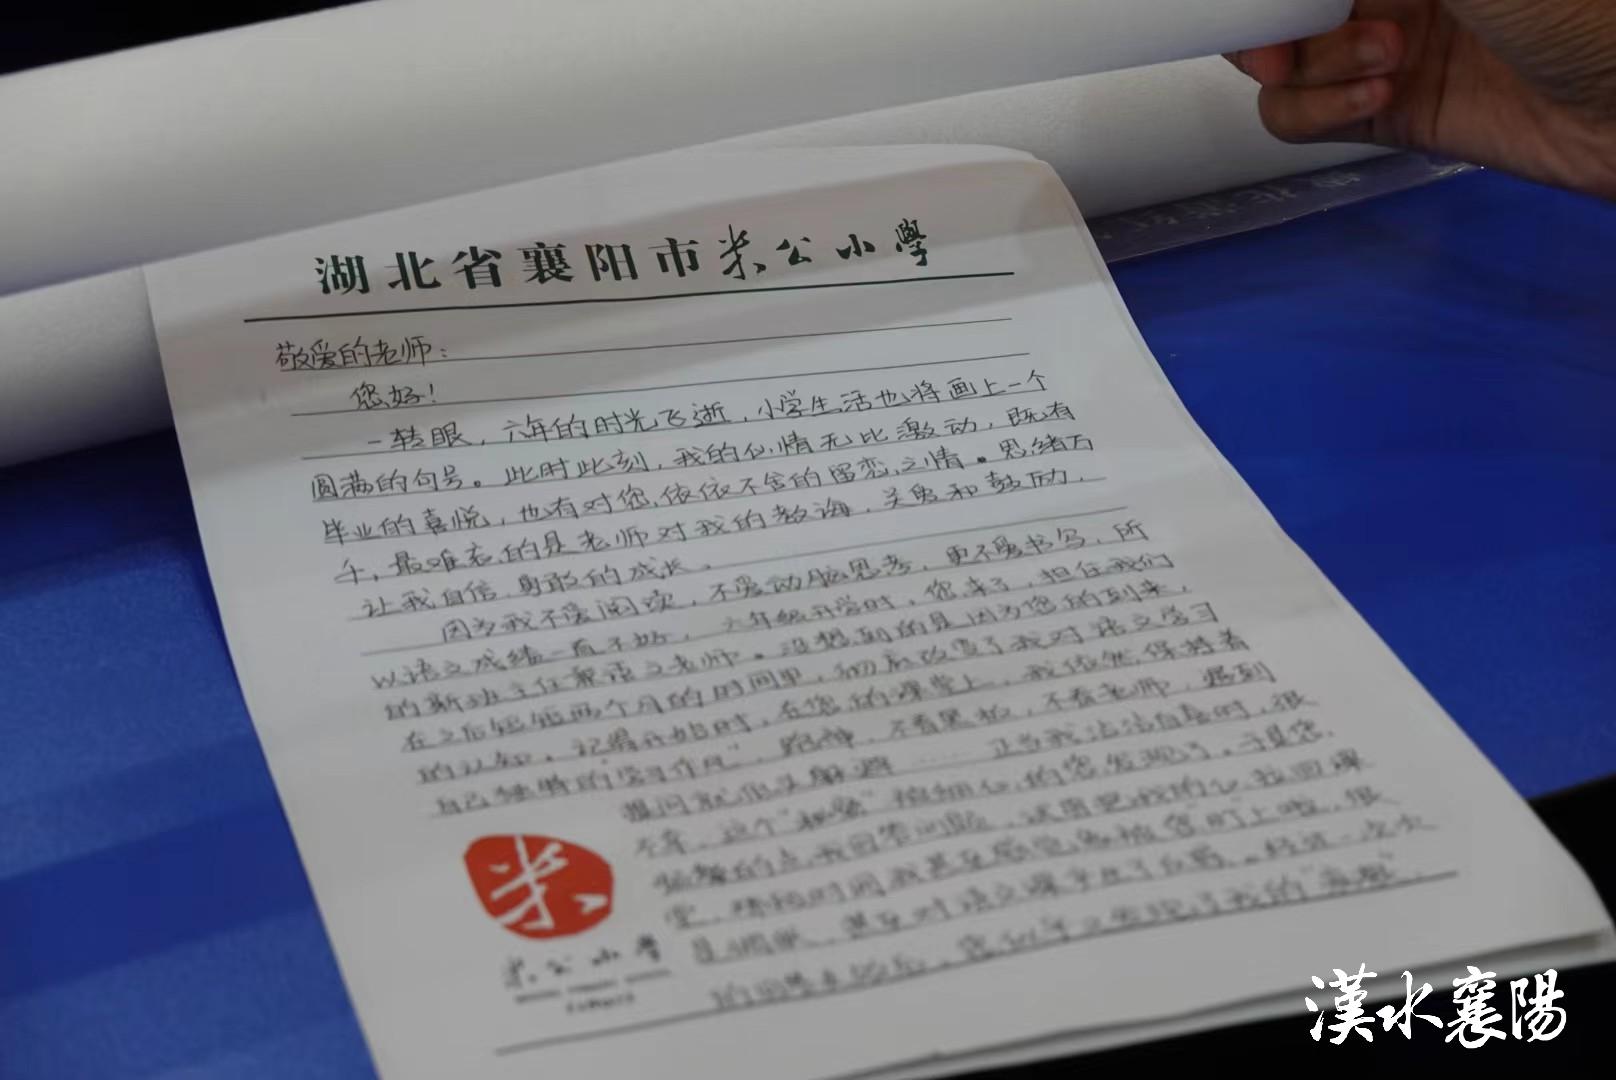 湖北省襄阳市米公小學
敬爱的老师：
您好！
一转眼，六年的时光飞逝，小学生活也将画上一个
圆满的句号。此时此刻，我的心情无比激动，既有
毕业的喜悦，也有对您依依不舍的留恋之情。思绪万
千，最难忘的是老师对我的教诲，关勇和鼓励，
让我自信、勇敢的成长。
因为我不爱阅读，不爱动脑思考，更不爱书写，所
以语文成绩一直不好，六年级开学时，您来了，担任我们
的新班主任兼语文老师。没想到的是因为您的到来，
在之后短短两个月的时间里，彻底改变了我对语文学习
的认知。记得开始时，在您的课堂上，我依然保持着
自己独特的"学习作风"，跑神，不看黑板，不看老师，遇到
提问就低头躲避……正当我沾沾自喜时，很
不幸，这个"秘密"被细心的您发现了。于是您
频繁的点我回答问题，试图把我的心拉回课
堂，
米
米公小学
漢水襄陽